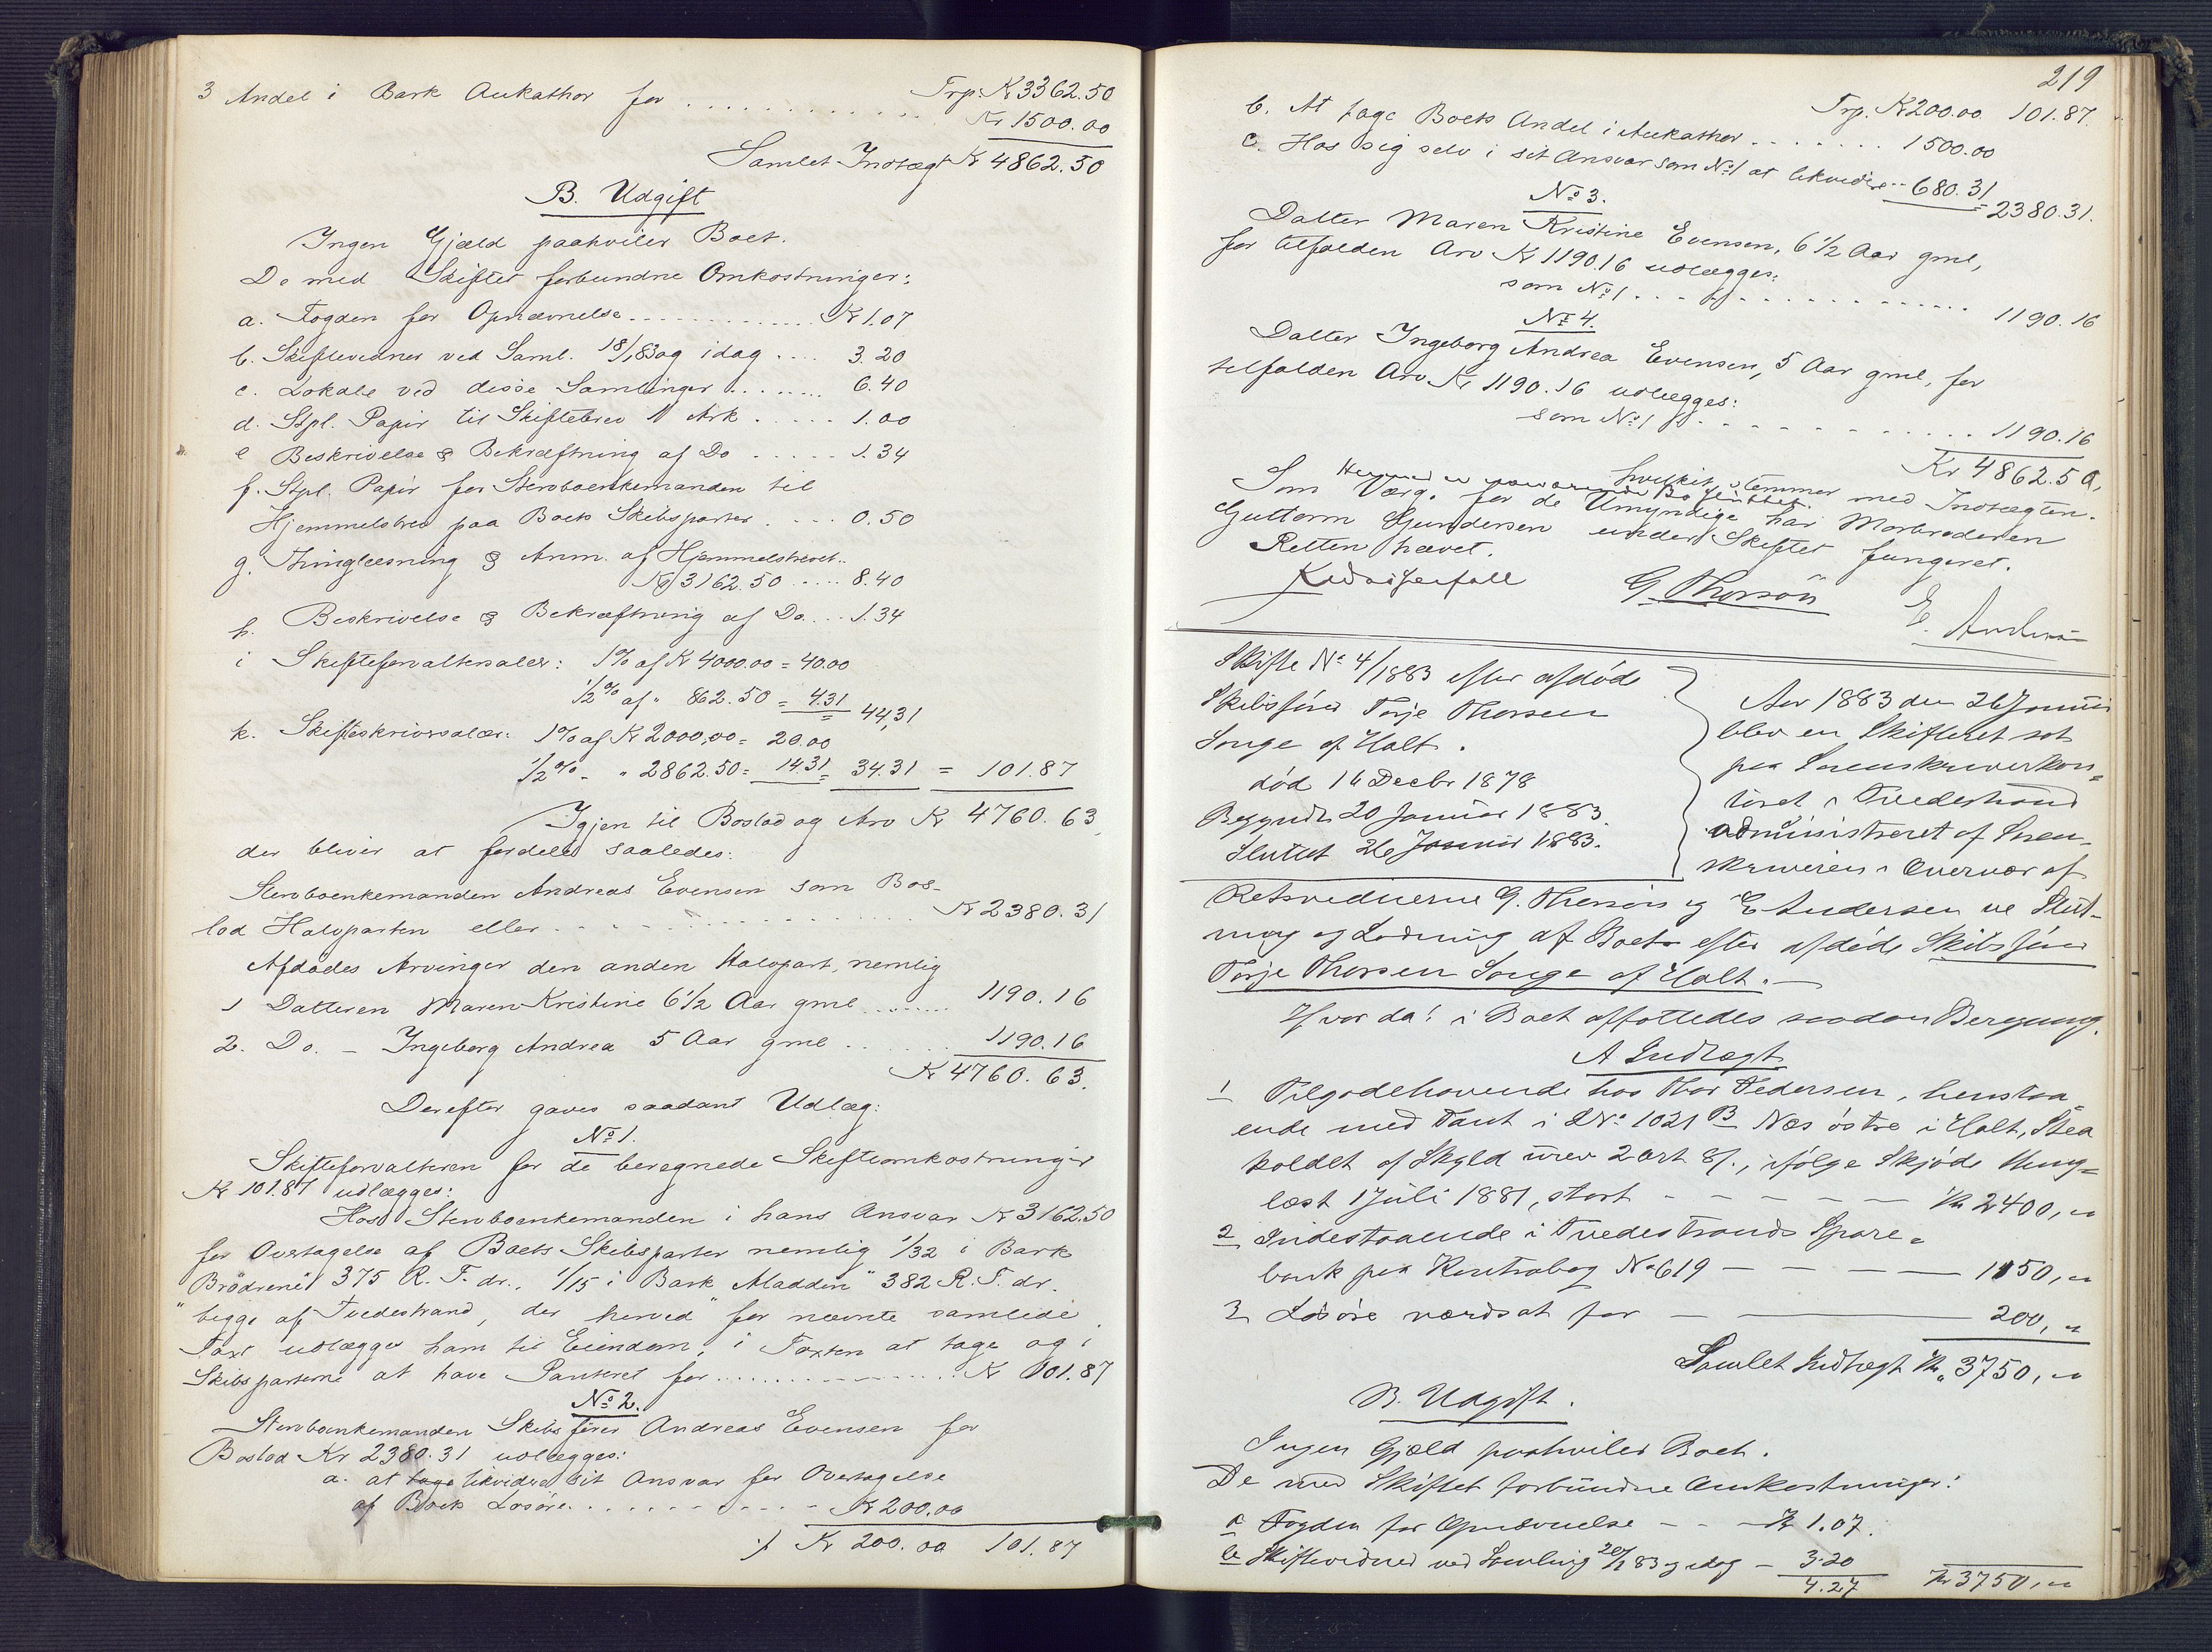 Trp. Kr 3362.50
3 Andel i Bark Aukathor for . . . . . . . . . . . Kr 1500.00
Samlet Indtægt Kr 4862.50
B. Udgift
Ingen Gjæld paahviler Boet.
De med Skiftet forbundne Omkostninger:
a. Fogden for Opnævnelse . . . . . . . . Kr 1.07
b. Skiftevidner ved Saml. 18/1 83 og idag . . . . 3.20
c. Lokale ved disse Samlinger . . . . . . . 6.40
d. Stpl. Papir til Skiftebrev 1 Ark . . . . . 1.00
e Beskrivelse & Bekræftning af Do . . . . . 1.34
f. Stpl. Papir for Stervboenkemanden til
Hjemmelsbrev paa Boets Skibsparter . . . . 0.50
g. Thinglæsning & Anm. af Hjemmelsbrevet..
Kr 3162.50 . . . . . 8.40
h. Beskrivelse & Bekræftning af Do . . . . 1.34
i Skifteforvaltersalær: 1% af Kr 4000.00 = 40.00
1/2% af " 862.50 = 4.31 = 44,31
k. Skifteskriversalær: 1% af Kr 2000,00 = 20.00
1/2% - " 2862.50 = 14.31 = 34.31 = 101.87
Igjen til Boslod og Arv Kr 4760.63
der bliver at fordele saaledes:
Stervboenkemanden Andreas Evensen som Bos-
lod Halvparten eller . . . . . . . . . . . . Kr 2380.31
Afdødes Arvinger den anden Halvpart, nemlig
1 Datteren Maren Kristine 6 1/2 Aar gml . . . . . . 1190.16
2. Do. – Ingeborg Andrea 5 Aar gml . . . . . . 1190.16
Kr 4760.63.
Derefter gaves saadant Udlæg:
No 1.
Skifteforvalteren for de beregnede Skifteomkostninger
Kr 101.87 udlægges:
Hos Stervboenkemanden i hans Ansvar Kr 3162.50
for Overtagelse af Boets Skibsparter nemlig 1/32 i Bark
"Brødrene" 375 R. T. dr., 1/15 i Bark "Aladdin" 382 R. T. dr.
begge af Tvedestrand, der herved for nævnte samlede
Taxt udlægges ham til Eiendom, i Taxten at tage og i
Skibsparterne at have Panteret for . . . . . . . . . . Kr 101.87
No 2.
Stervboenkemanden Skibsfører Andreas Evensen for
Boslod Kr 2380.31 udlægges:
a. at tage likvidere sit Ansvar for Overtagelse
af Boets Løsøre . . . . . . . . . . . . Kr 200.00
Kr 200.00 101.87
219
Trp. Kr 200.00 101.87
b. At tage Boets Andel i Aukathor . . . . . . . 1500.00
c. Hos sig selv i sit Ansvar som No 1 at likvidere .. 680.31 = 2380.31.
No 3.
Datter Maren Kristine Evensen, 6 1/2 Aar gml,
for tilfalden Arv Kr 1190.16 udlægges:
som No 1 . . . . . . . . . . . . . . . 1190.16
No 4.
Datter Ingeborg Andrea Evensen, 5 Aar gml, for
tilfalden Arv Kr 1190.16 udlægges:
som No 1 . . . . . . . . . . . . . . . 1190.16
Kr 4862.50,
hvilket stemmer med Indtægten.
Hermed er nærværende Bo sluttet.
Som Værge for de Umyndige har Morbroderen
Guttorm Gundersen under Skiftet fungeret.
Retten hævet.
G. Thorsön
E. Andersen
Skifte No 4/1883 efter afdøde
Skibsfører Terje Thorsen
Songe af Holt.
død 16 Decbr 1878
Begyndt 20 Januar 1883.
Sluttet 26 Januar 1883.
Aar 1883 den 26 Januar
blev en Skifteret sat
paa Sorenskriverkon=
toret i Tvedestrand
administreret af Soren-
skriveren i Overvær af
Retsvidnerne G. Thorsön og E Andersen til Slut-
ning og Lodning af Boet efter afdøde Skibsfører
Terje Thorsen Songe af Holt. —
Hvorda: i Boet affattedes saadan Beregning.
A Indtægt
1 Tilgodehavende hos Thor Pedersen, henstaa=
ende med Pant i LNo 1021 B Næs østre i Holt, Stea
koldet af Skyld urev 2 ort 8 s., ifølge Skjøde thing=
læst 1 Juli 1881, stort – – – – – Kr 2400,"
2 Indestaaende i Tvedestrands Spare=
bank paa Kontrabog No 619 – – – – 1150,"
3 Løsøre værdsat for – ——— 200,"
Samlet Indtægt Kr. 3750,"
B. Udgift.
Ingen Gjæld paahviler Boet.
De med Skiftet forbundne Omkostninger:
a Fogden for Opnævnelse – – – Kr 1.07.
b Skiftevidner ved Samling 20/1 83 og idag – 3.20
4.27 Kr 3750,"